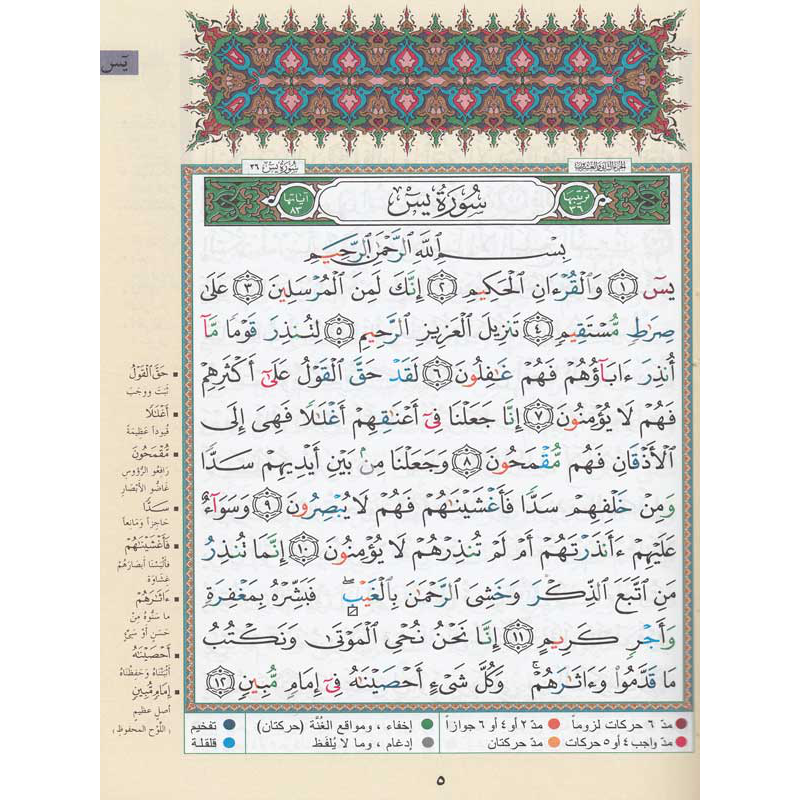 يٓس
الجزء الثاني والعشرون
سُورَةُ يسٓ ٣٦
ترتيبها ٣٦
سُورَةُ يسٓ
آياتها ٨٣
بِسْمِ ٱللَّهِ ٱلرَّحْمَٰنِ ٱلرَّحِيمِ
يسٓ ١ وَٱلْقُرْءَانِ ٱلْحَكِيمِ ٢ إِنَّكَ لَمِنَ ٱلْمُرْسَلِينَ ٣ عَلَىٰ
صِرَٰطٍ مُّسْتَقِيمٍ ٤ تَنزِيلَ ٱلْعَزِيزِ ٱلرَّحِيمِ ٥ لِتُنذِرَ قَوْمًا مَّآ
أُنذِرَ ءَابَآؤُهُمْ فَهُمْ غَٰفِلُونَ ٦ لَقَدْ حَقَّ ٱلْقَوْلُ عَلَىٰٓ أَكْثَرِهِمْ
فَهُمْ لَا يُؤْمِنُونَ ٧ إِنَّا جَعَلْنَا فِىٓ أَعْنَٰقِهِمْ أَغْلَٰلًا فَهِىَ إِلَى
ٱلْأَذْقَانِ فَهُم مُّقْمَحُونَ ٨ وَجَعَلْنَا مِنۢ بَيْنِ أَيْدِيهِمْ سَدًّا
وَمِنْ خَلْفِهِمْ سَدًّا فَأَغْشَيْنَٰهُمْ فَهُمْ لَا يُبْصِرُونَ ٩ وَسَوَآءٌ
عَلَيْهِمْ ءَأَنذَرْتَهُمْ أَمْ لَمْ تُنذِرْهُمْ لَا يُؤْمِنُونَ ١٠ إِنَّمَا تُنذِرُ
مَنِ ٱتَّبَعَ ٱلذِّكْرَ وَخَشِىَ ٱلرَّحْمَٰنَ بِٱلْغَيْبِ ۖ فَبَشِّرْهُ بِمَغْفِرَةٍ
وَأَجْرٍ كَرِيمٍ ١١ إِنَّا نَحْنُ نُحْىِ ٱلْمَوْتَىٰ وَنَكْتُبُ
مَا قَدَّمُوا۟ وَءَاثَٰرَهُمْ ۚ وَكُلَّ شَىْءٍ أَحْصَيْنَٰهُ فِىٓ إِمَامٍ مُّبِينٍ ١٢
▪ حَقَّ ٱلْقَوْلُ
ثَبَتَ وَوَجَبَ
▪ أَغْلَٰلًا
قُيوداً عَظِيمَةً
▪ مُّقْمَحُونَ
رَافِعُو الرُّؤُوسِ
غَاضُّو الأبْصَارِ
▪ سَدًّا
حَاجِزاً وَمَانِعاً
▪ فَأَغْشَيْنَٰهُمْ
فَألْبَسْنَا أبْصَارَهُمْ
غِشَاوَة
▪ ءَاثَٰرَهُمْ
مَا سَنُّوهُ مِنْ
حَسَنٍ أوْ سَيِّئٍ
▪ أَحْصَيْنَٰهُ
أثْبَتْنَاهُ وَحَفِظْنَاهُ
▪ إِمَامٍ مُّبِينٍ
أصلٍ عظيمٍ
(اللَّوْحِ المحفوظِ)
● مدّ ٦ حركات لزوماً ● مدّ ٢ أو ٤ أو ٦ جوازاً ● إخفاء ، ومواقع الغُنَّة (حركتان) ● تفخيم
● مدّ واجب ٤ أو ٥ حركات ● مدّ حركتان ● إدغام ، وما لا يُلفَظ ● قلقلة
٥